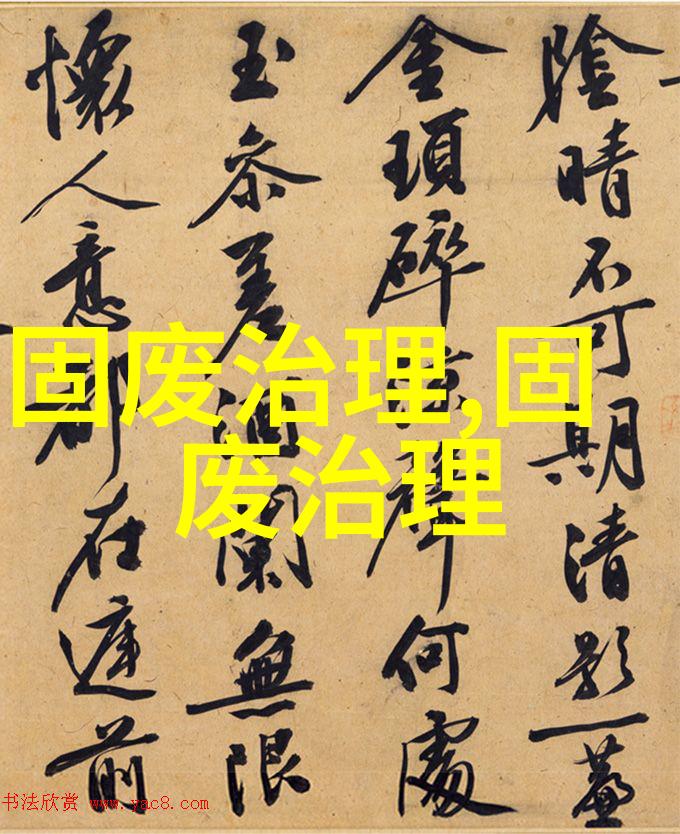 陰晴不可期清影一
金瑣碎涼聲何處
玉參差迴闌無限
懷人意都在前
固废治理,固
废治理
书法欣赏 www.yac8.com